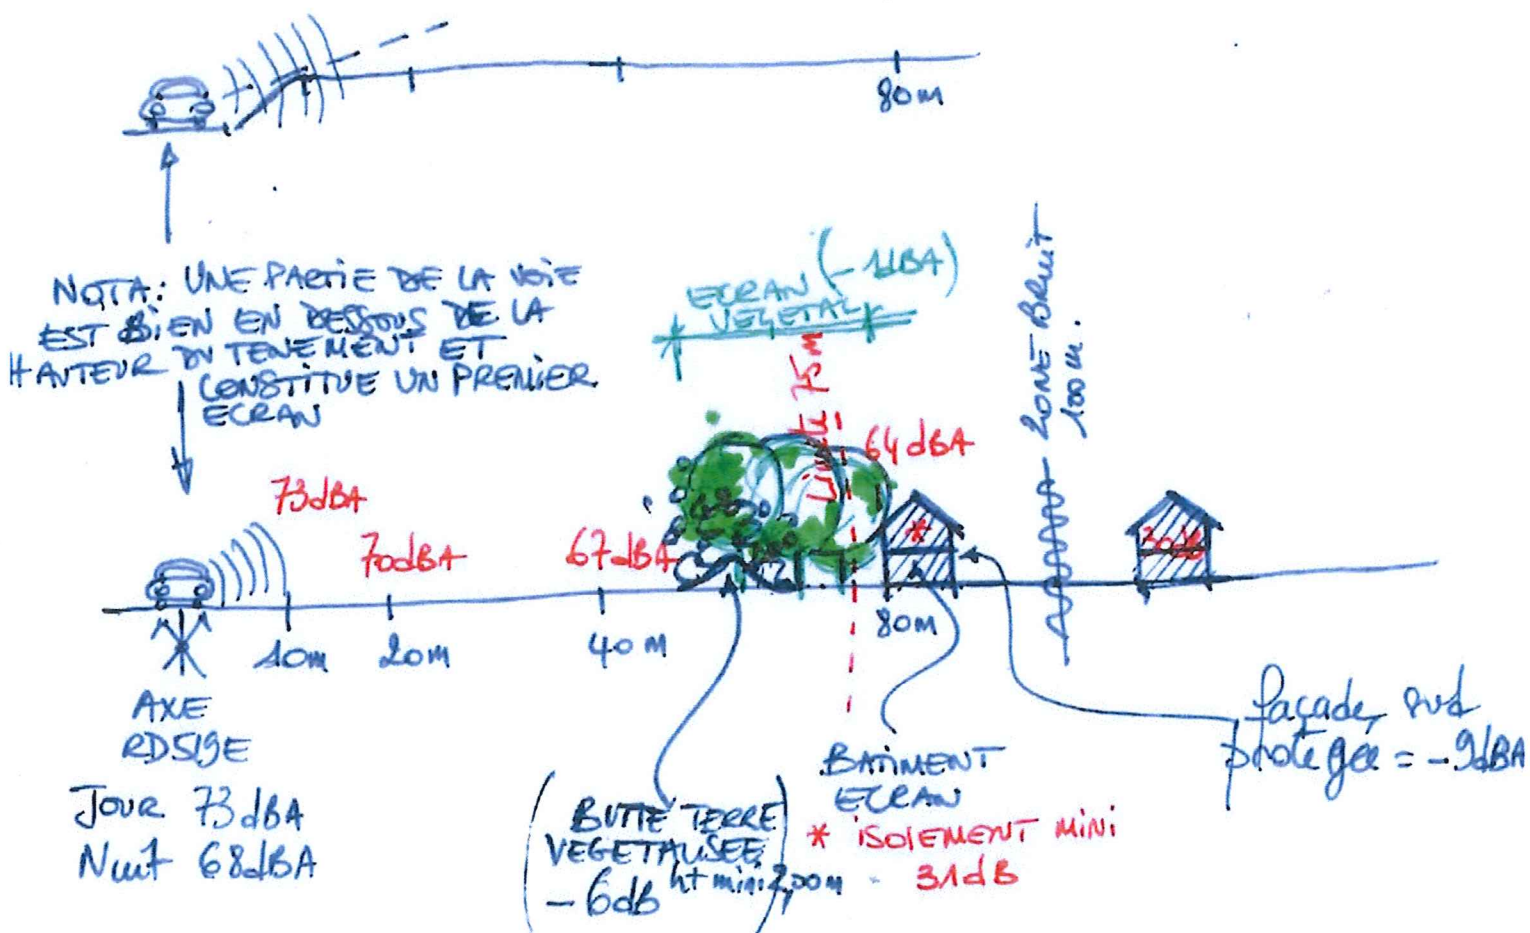 80m
NOTA: UNE PARTIE DE LA VOIE
EST BIEN EN DESSOUS DE LA
HAUTEUR DU TENEMENT ET
CONSTITUE UN PREMIER
ECRAN
ECRAN (-1dBA)
VEGETAL
Limite 75m
ZONE BRUIT
100 m.
73dBA
70dBA
67dBA
64dBA
*
30dB
10m
20m
40m
80m
AXE
RD519E
JOUR 73dBA
Nuit 68dBA
(BUTTE TERRE
VEGETALISEE
-6db ht mini 2,00m)
BATIMENT
ECRAN
* ISOLEMENT MINI
31dB
façade, sud
protégée = -9dBA